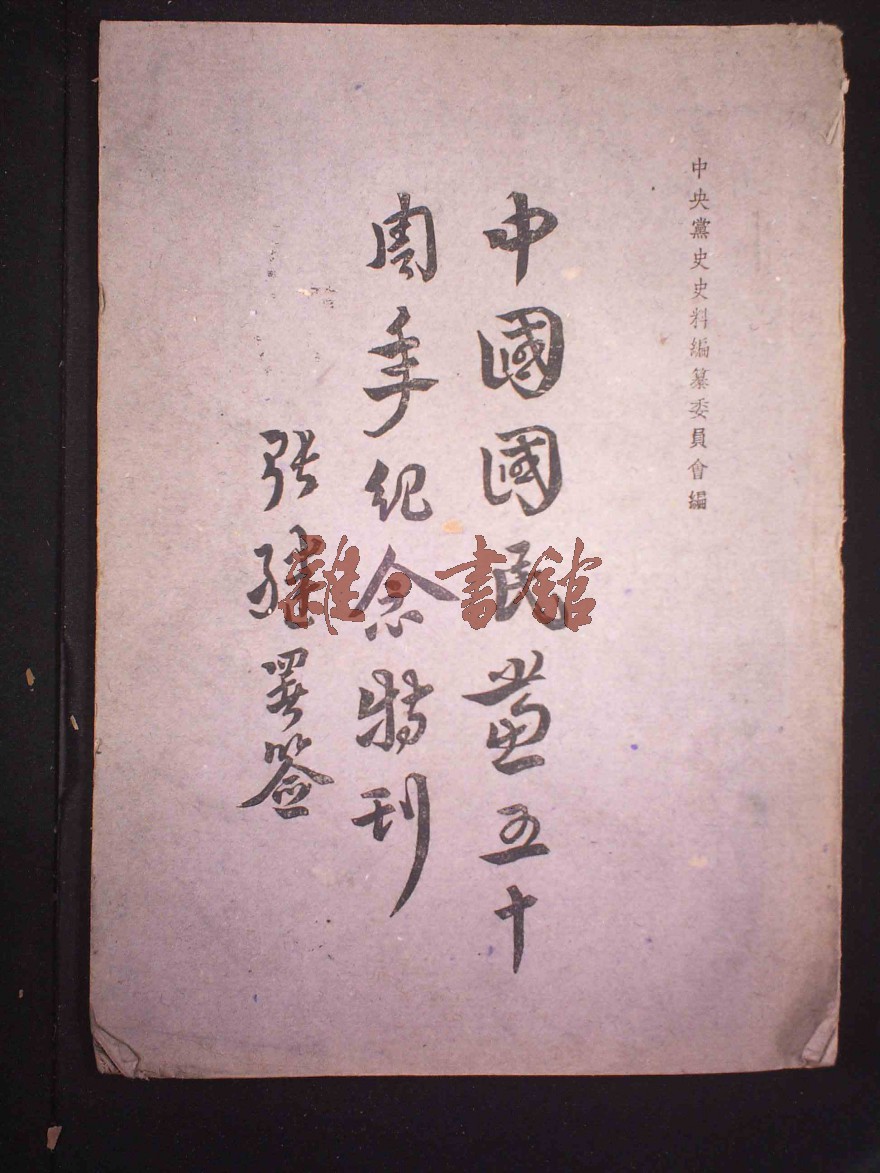 中央黨史史料編纂委員會編
中國國民黨五十
周年紀念特刊
張繼署簽
雜·書館